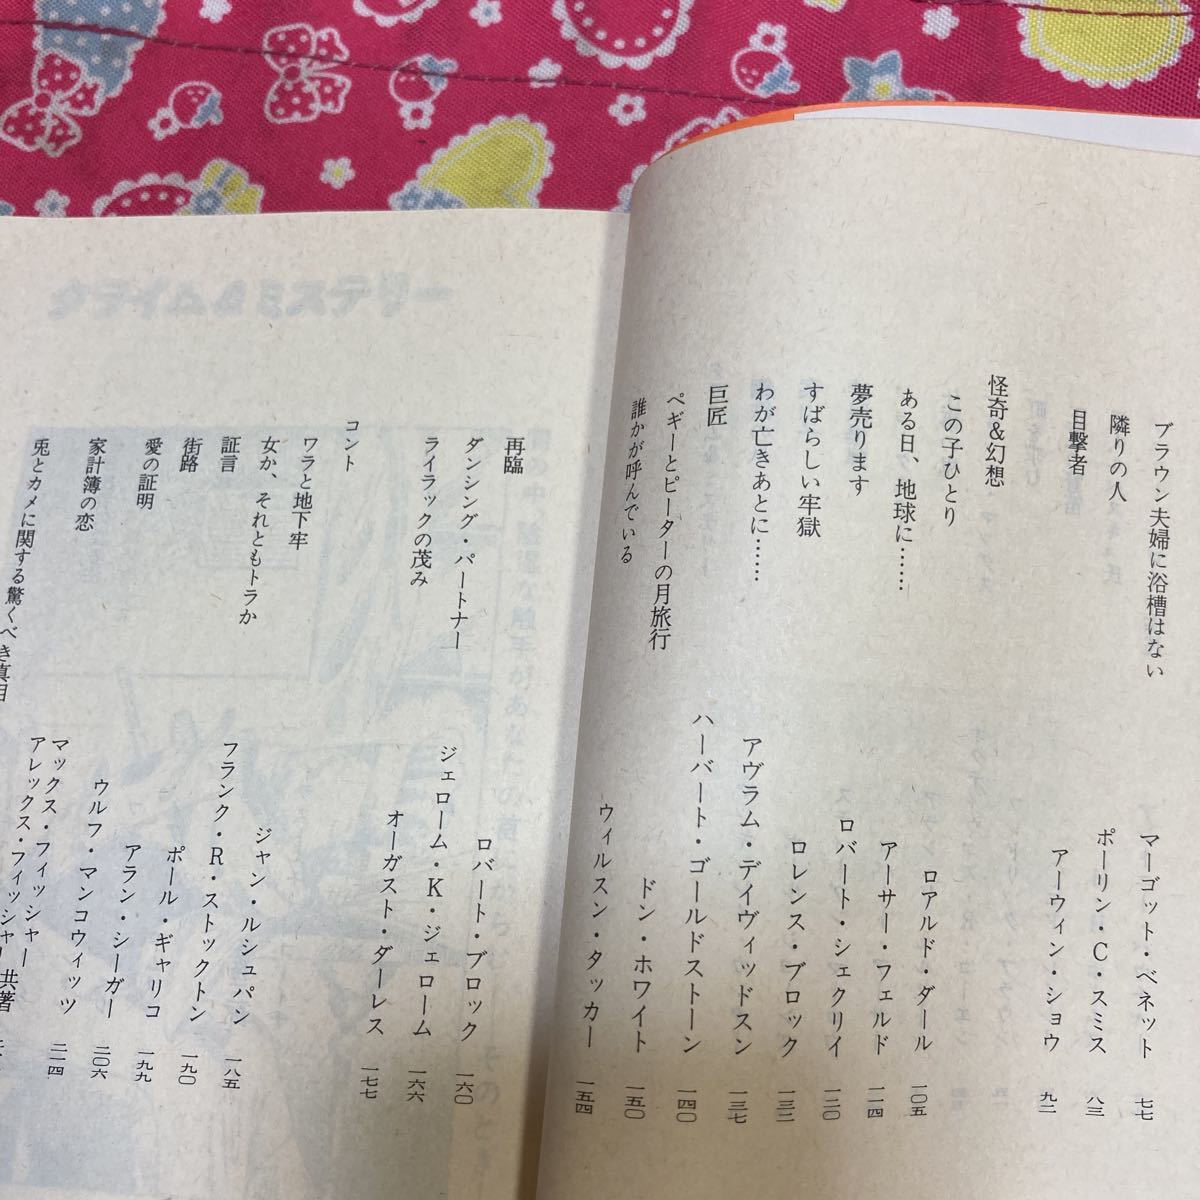 ブラウン夫婦に浴槽はない マーゴット・ベネット 七七
隣りの人 ポーリン・C・スミス 八三
目撃者 アーウィン・ショウ 九二
怪奇&幻想
この子ひとり ロアルド・ダール 一〇五
ある日、地球に…… アーサー・フェルド 一一四
夢売ります ロバート・シェクリイ 一二〇
すばらしい牢獄 ロレンス・ブロック 一三二
わが亡きあとに…… アヴラム・デイヴィッドスン 一三七
巨匠 ハーバート・ゴールドストーン 一四〇
ペギーとピーターの月旅行 ドン・ホワイト 一五〇
誰かが呼んでいる ウィルスン・タッカー 一五四
再臨 ロバート・ブロック 一六〇
ダンシング・パートナー ジェローム・K・ジェローム 一六六
ライラックの茂み オーガスト・ダーレス 一七七
コント
ワラと地下牢 ジャン・ルシュパン 一八五
女か、それともトラか フランク・R・ストックトン 一九〇
証言 ポール・ギャリコ 一九九
街路 アラン・シーガー 二〇六
愛の証明 ウルフ・マンコウィッツ 二一四
家計簿の恋 マックス・フィッシャー
アレックス・フィッシャー共著
兎とカメに関する驚くべき真相
クライム&ミステリー